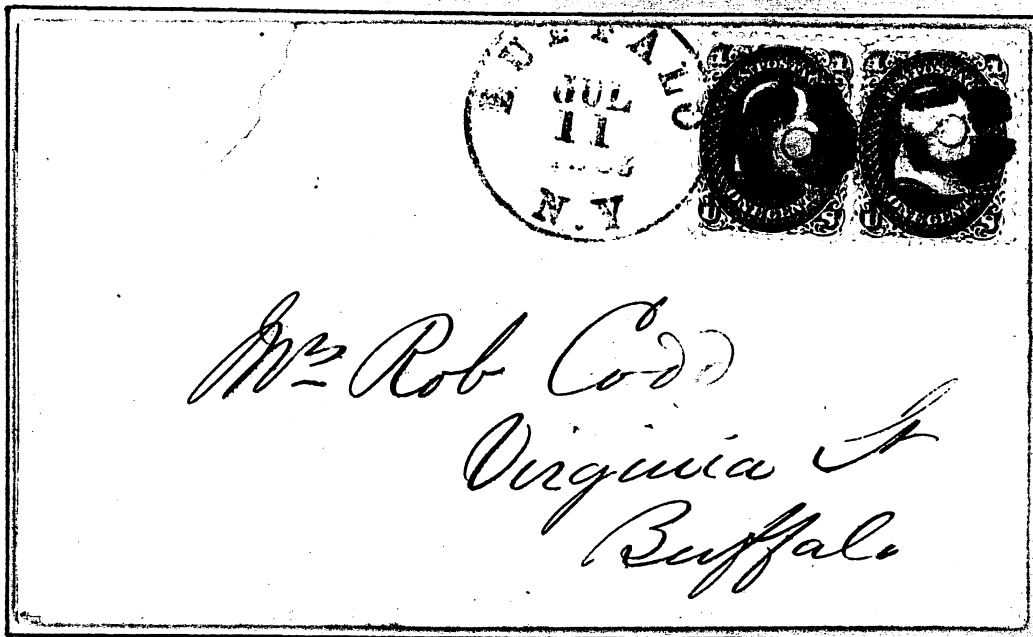 BUFFALO
JUL
11
N.Y.
U.S. POSTAGE
ONE CENT
U S
U.S. POSTAGE
ONE CENT
U S
Mrs Rob Codd
Virginia St
Buffalo